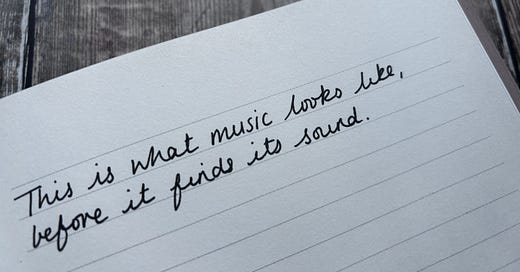 This is what music looks like,
before it finds its sound.